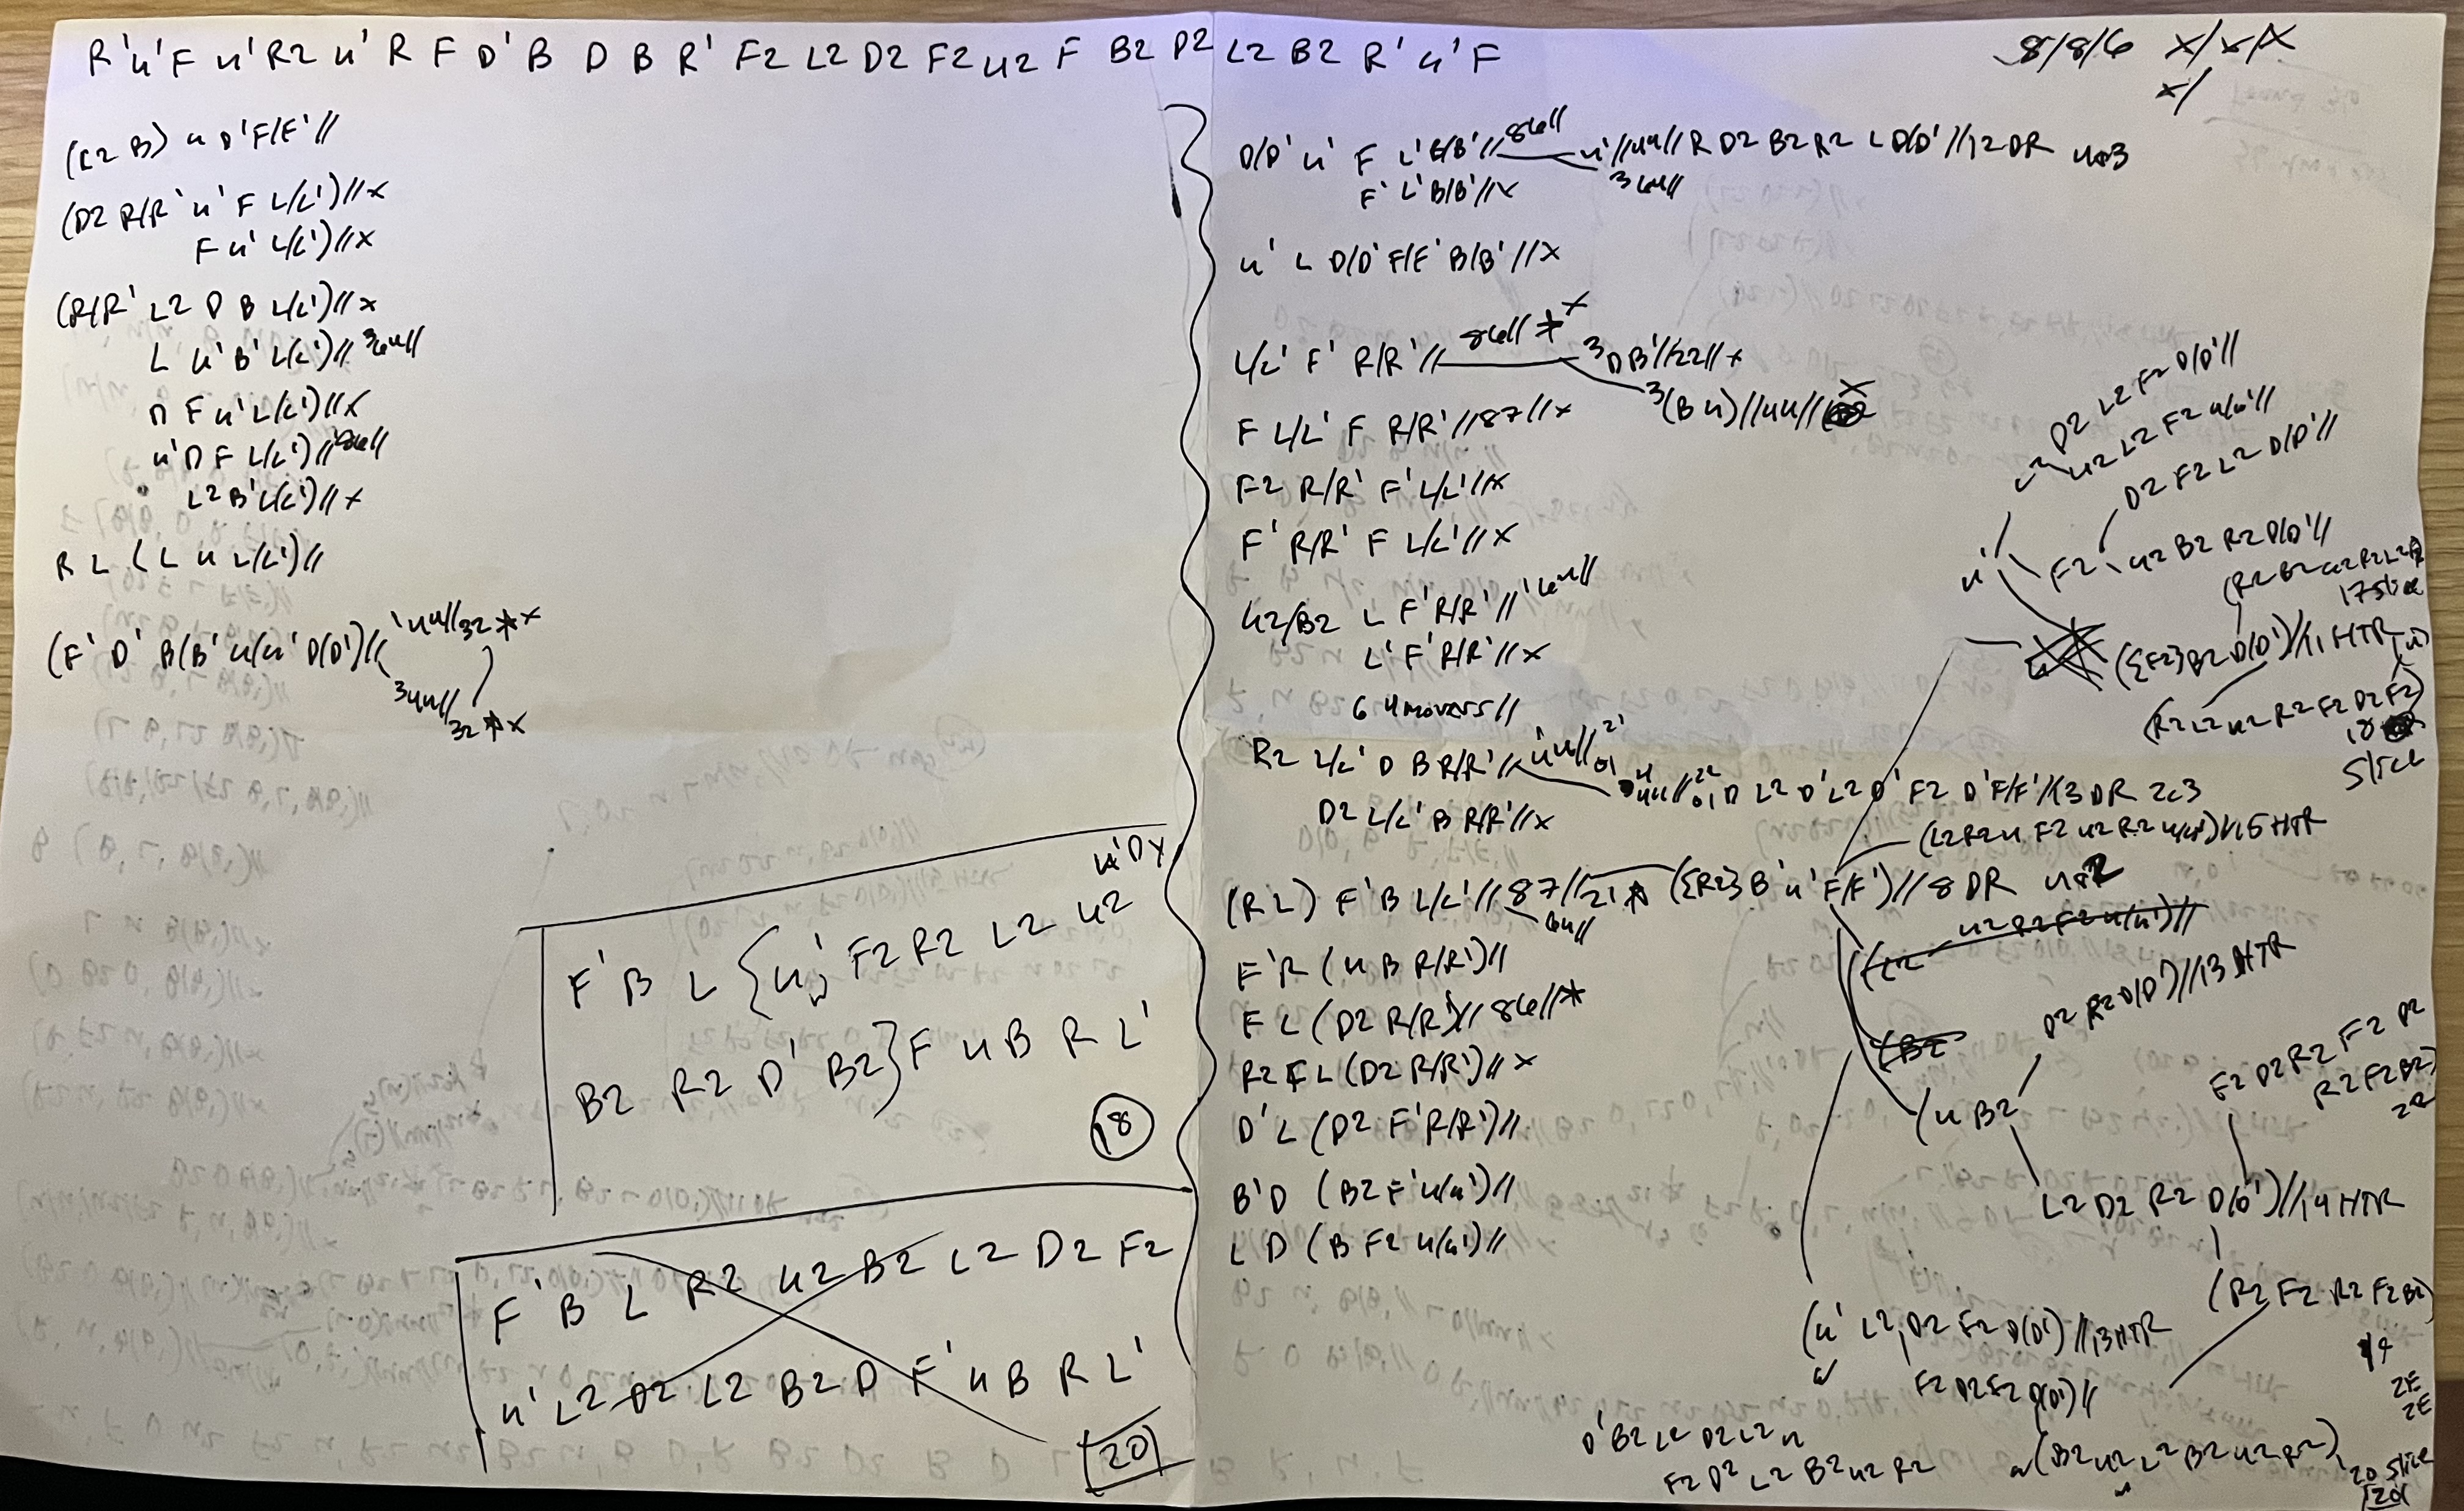 R' u' F u' R2 u' R F D' B D B R' F2 L2 D2 F2 u2 F B2 D2 L2 B2 R' u' F
8/8/6 x/x/x
x/
(L2 B) u D' F/F' //
(D2 R/R' u' F L/L') // x
F u' L/L') // x
(R/R' L2 D B L/L') // x
L u' B' L/L') //
D F u' L/L') // x
u' D F L/L') //
L2 B' L/L') // x
R L (L u L/L') //
(F' D' B/B' u/u' D/D') //
32 x
3 44 //
32 x
D/D' u' F L' B/B' // 86 // u' // 44 // R D2 B2 R2 L D/D' // 12 DR 4a3
F' L' B/B' // x
u' L D/D' F/F' B/B' // x
L/L' F' R/R' // 86 // x 3 D B' // 22 // x
3 (B u) // 44 //
F L/L' F R/R' // 87 // x
F2 R/R' F' L/L' // x
F' R/R' F L/L' // x
u2/B2 L F' R/R' //
L' F' R/R' // x
6 4 movers //
R2 L/L' D B R/R' //
D L2 D' L2 D' F2 D' F/F' // 13 DR 2c3
D2 L/L' B R/R' // x
(L2 R2 u F2 u2 R2 u/u') // 15 HTR
(R L) F' B L/L' // 87 // ({R2} B' u' F/F') // 8 DR 4a2
F' R (u B R/R') //
F L (D2 R/R') // 86 //
R2 F L (D2 R/R') // x
D' L (D2 F' R/R') //
B' D (B2 F' u/u') //
L D (B F2 u/u') //
D2 L2 F2 D/D' //
u2 L2 F2 u/u' //
D2 F2 L2 D/D' //
u' F2 u2 B2 R2 D/D' //
17 slice
({F2} B2 D/D') // 11 HTR
(R2 L2 u2 R2 F2 D2 F2)
18
slice
u2 R2 F2 u/u') //
(B2
D2 R2 D/D') // 13 HTR
(u B2
F2 D2 R2 F2 D2
R2 F2 B2)
L2 D2 R2 D/D') // 14 HTR
(R2 F2 R2 F2 B2)
19
2E
2E
(u' L2 D2 F2 D/D') // 13 HTR
F2 D2 F2 D/D') //
D' B2 L2 D2 L2 u
F2 D2 L2 B2 u2 R2
(B2 u2 L2 B2 u2 R2)
20 slice
u' D x
F' B L {u' F2 R2 L2 u2
B2 R2 D' B2} F u B R L'
18
F' B L R2 u2 B2 L2 D2 F2
u' L2 D2 L2 B2 D F' u B R L'
20